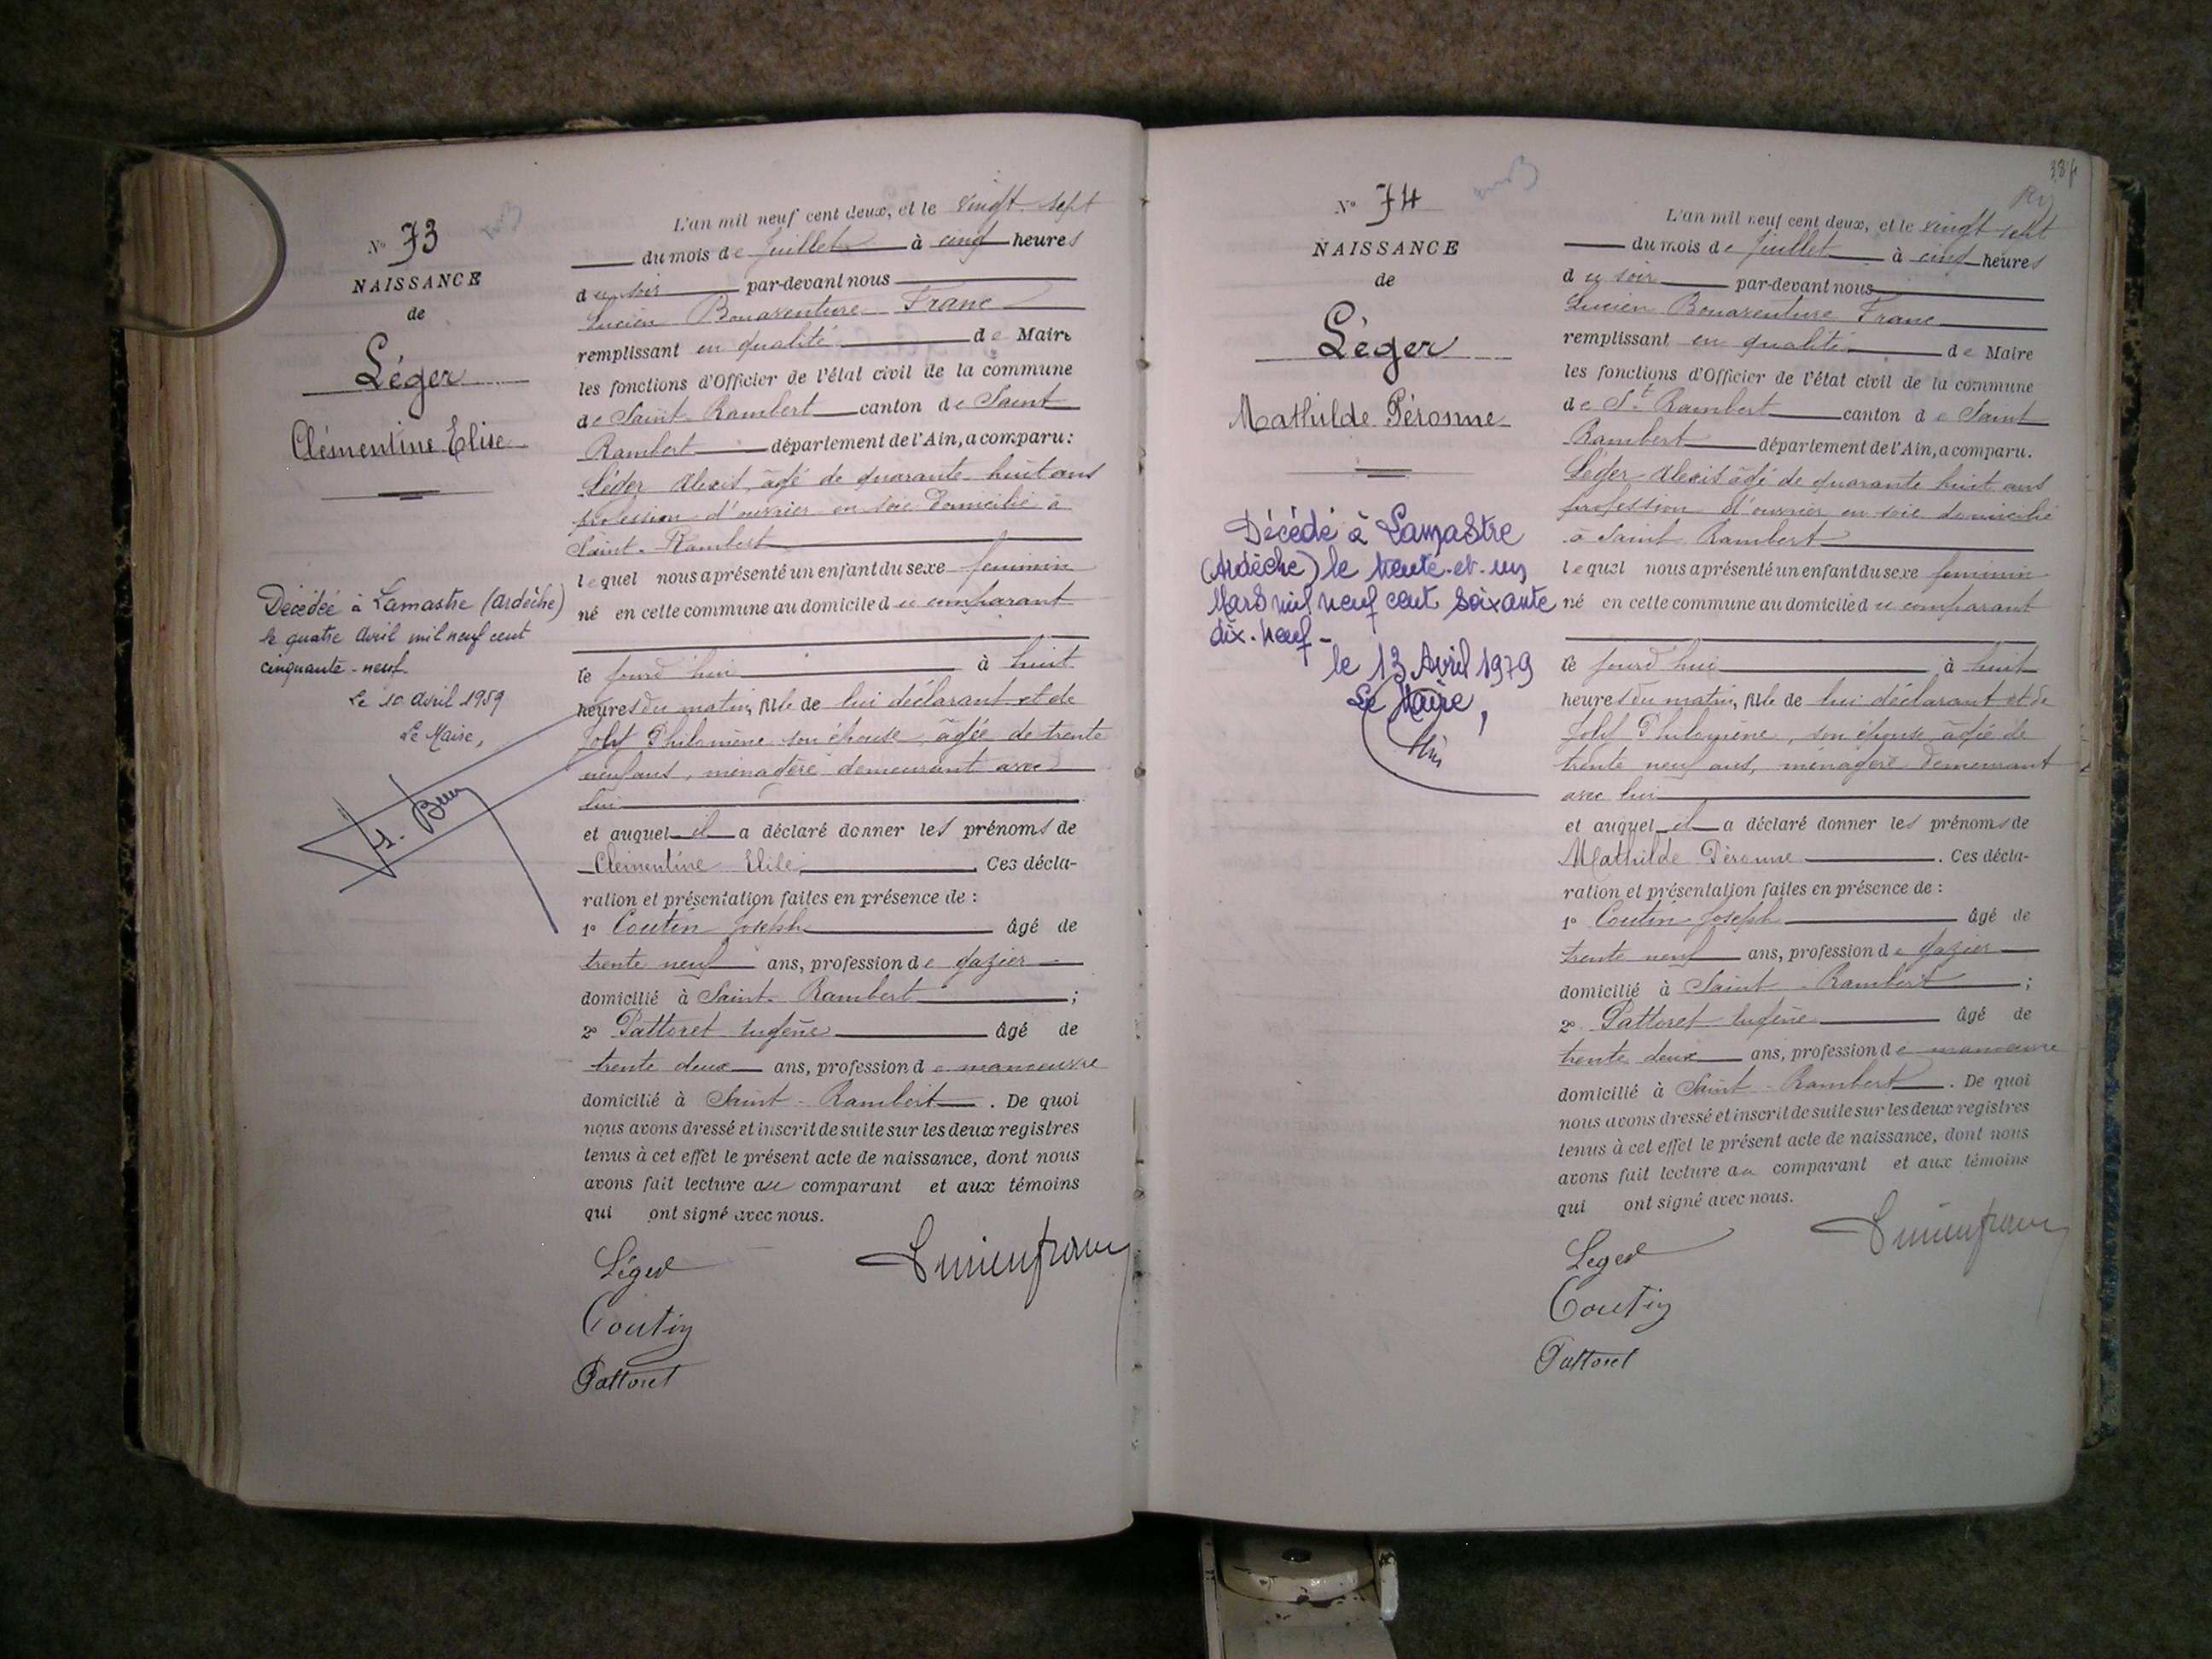 N° 73
NAISSANCE
de
Léger
Clémentine Elise
Décédée à Lamastre (Ardèche)
le quatre Avril mil neuf cent
cinquante-neuf.
Le 10 Avril 1959
Le Maire,
L'an mil neuf cent deux, et le vingt-sept
du mois de Juillet à cinq heures
du soir par-devant nous
Lucien Bonaventure Franc
remplissant en qualité de Maire
les fonctions d'Officier de l'état civil de la commune
de Saint-Rambert canton de Saint
Rambert département de l'Ain, a comparu:
Léger Alexis, âgé de quarante huit ans
profession d'ouvrier en soie domicilié à
Saint-Rambert
lequel nous a présenté un enfant du sexe feminin
né en cette commune au domicile du comparant
ce jourd'hui à huit
heures du matin, fille de lui déclarant et de
Joly Philomène son épouse, âgée de trente
neuf ans, ménagère demeurant avec
lui
et auquel il a déclaré donner les prénoms de
Clémentine Elise. Ces décla-
ration et présentation faites en présence de :
1° Coutin Joseph âgé de
trente neuf ans, profession de gazier
domicilié à Saint-Rambert ;
2° Pattoret Eugène âgé de
trente deux ans, profession de manoeuvre
domicilié à Saint-Rambert. De quoi
nous avons dressé et inscrit de suite sur les deux registres
tenus à cet effet le présent acte de naissance, dont nous
avons fait lecture au comparant et aux témoins
qui ont signé avec nous.
Léger
Lucien franc
Coutin
Pattoret
384
N° 74
NAISSANCE
de
Léger
Mathilde Péronne
Décédé à Lamastre
(Ardèche) le trente-et-un
Mars mil neuf cent soixante
dix-neuf-
le 13 Avril 1979
Le Maire,
L'an mil neuf cent deux, et le vingt sept
du mois de Juillet à cinq heures
du soir par-devant nous
Lucien Bonaventure Franc
remplissant en qualité de Maire
les fonctions d'Officier de l'état civil de la commune
de St Rambert canton de Saint
Rambert département de l'Ain, a comparu.
Léger Alexis âgé de quarante huit ans
profession d'ouvrier en soie domicilié
à Saint Rambert
lequel nous a présenté un enfant du sexe feminin
né en cette commune au domicile du comparant
ce jourd'hui à huit
heures du matin, fille de lui déclarant et de
Joly Philomène, son épouse âgée de
trente neuf ans, ménagère demeurant
avec lui
et auquel il a déclaré donner les prénoms de
Mathilde Péronne. Ces décla-
ration et présentation faites en présence de :
1° Coutin Joseph âgé de
trente neuf ans, profession de gazier
domicilié à Saint-Rambert ;
2° Pattoret Eugène âgé de
trente deux ans, profession de manoeuvre
domicilié à Saint-Rambert. De quoi
nous avons dressé et inscrit de suite sur les deux registres
tenus à cet effet le présent acte de naissance, dont nous
avons fait lecture au comparant et aux témoins
qui ont signé avec nous.
Léger
Lucien franc
Coutin
Pattoret